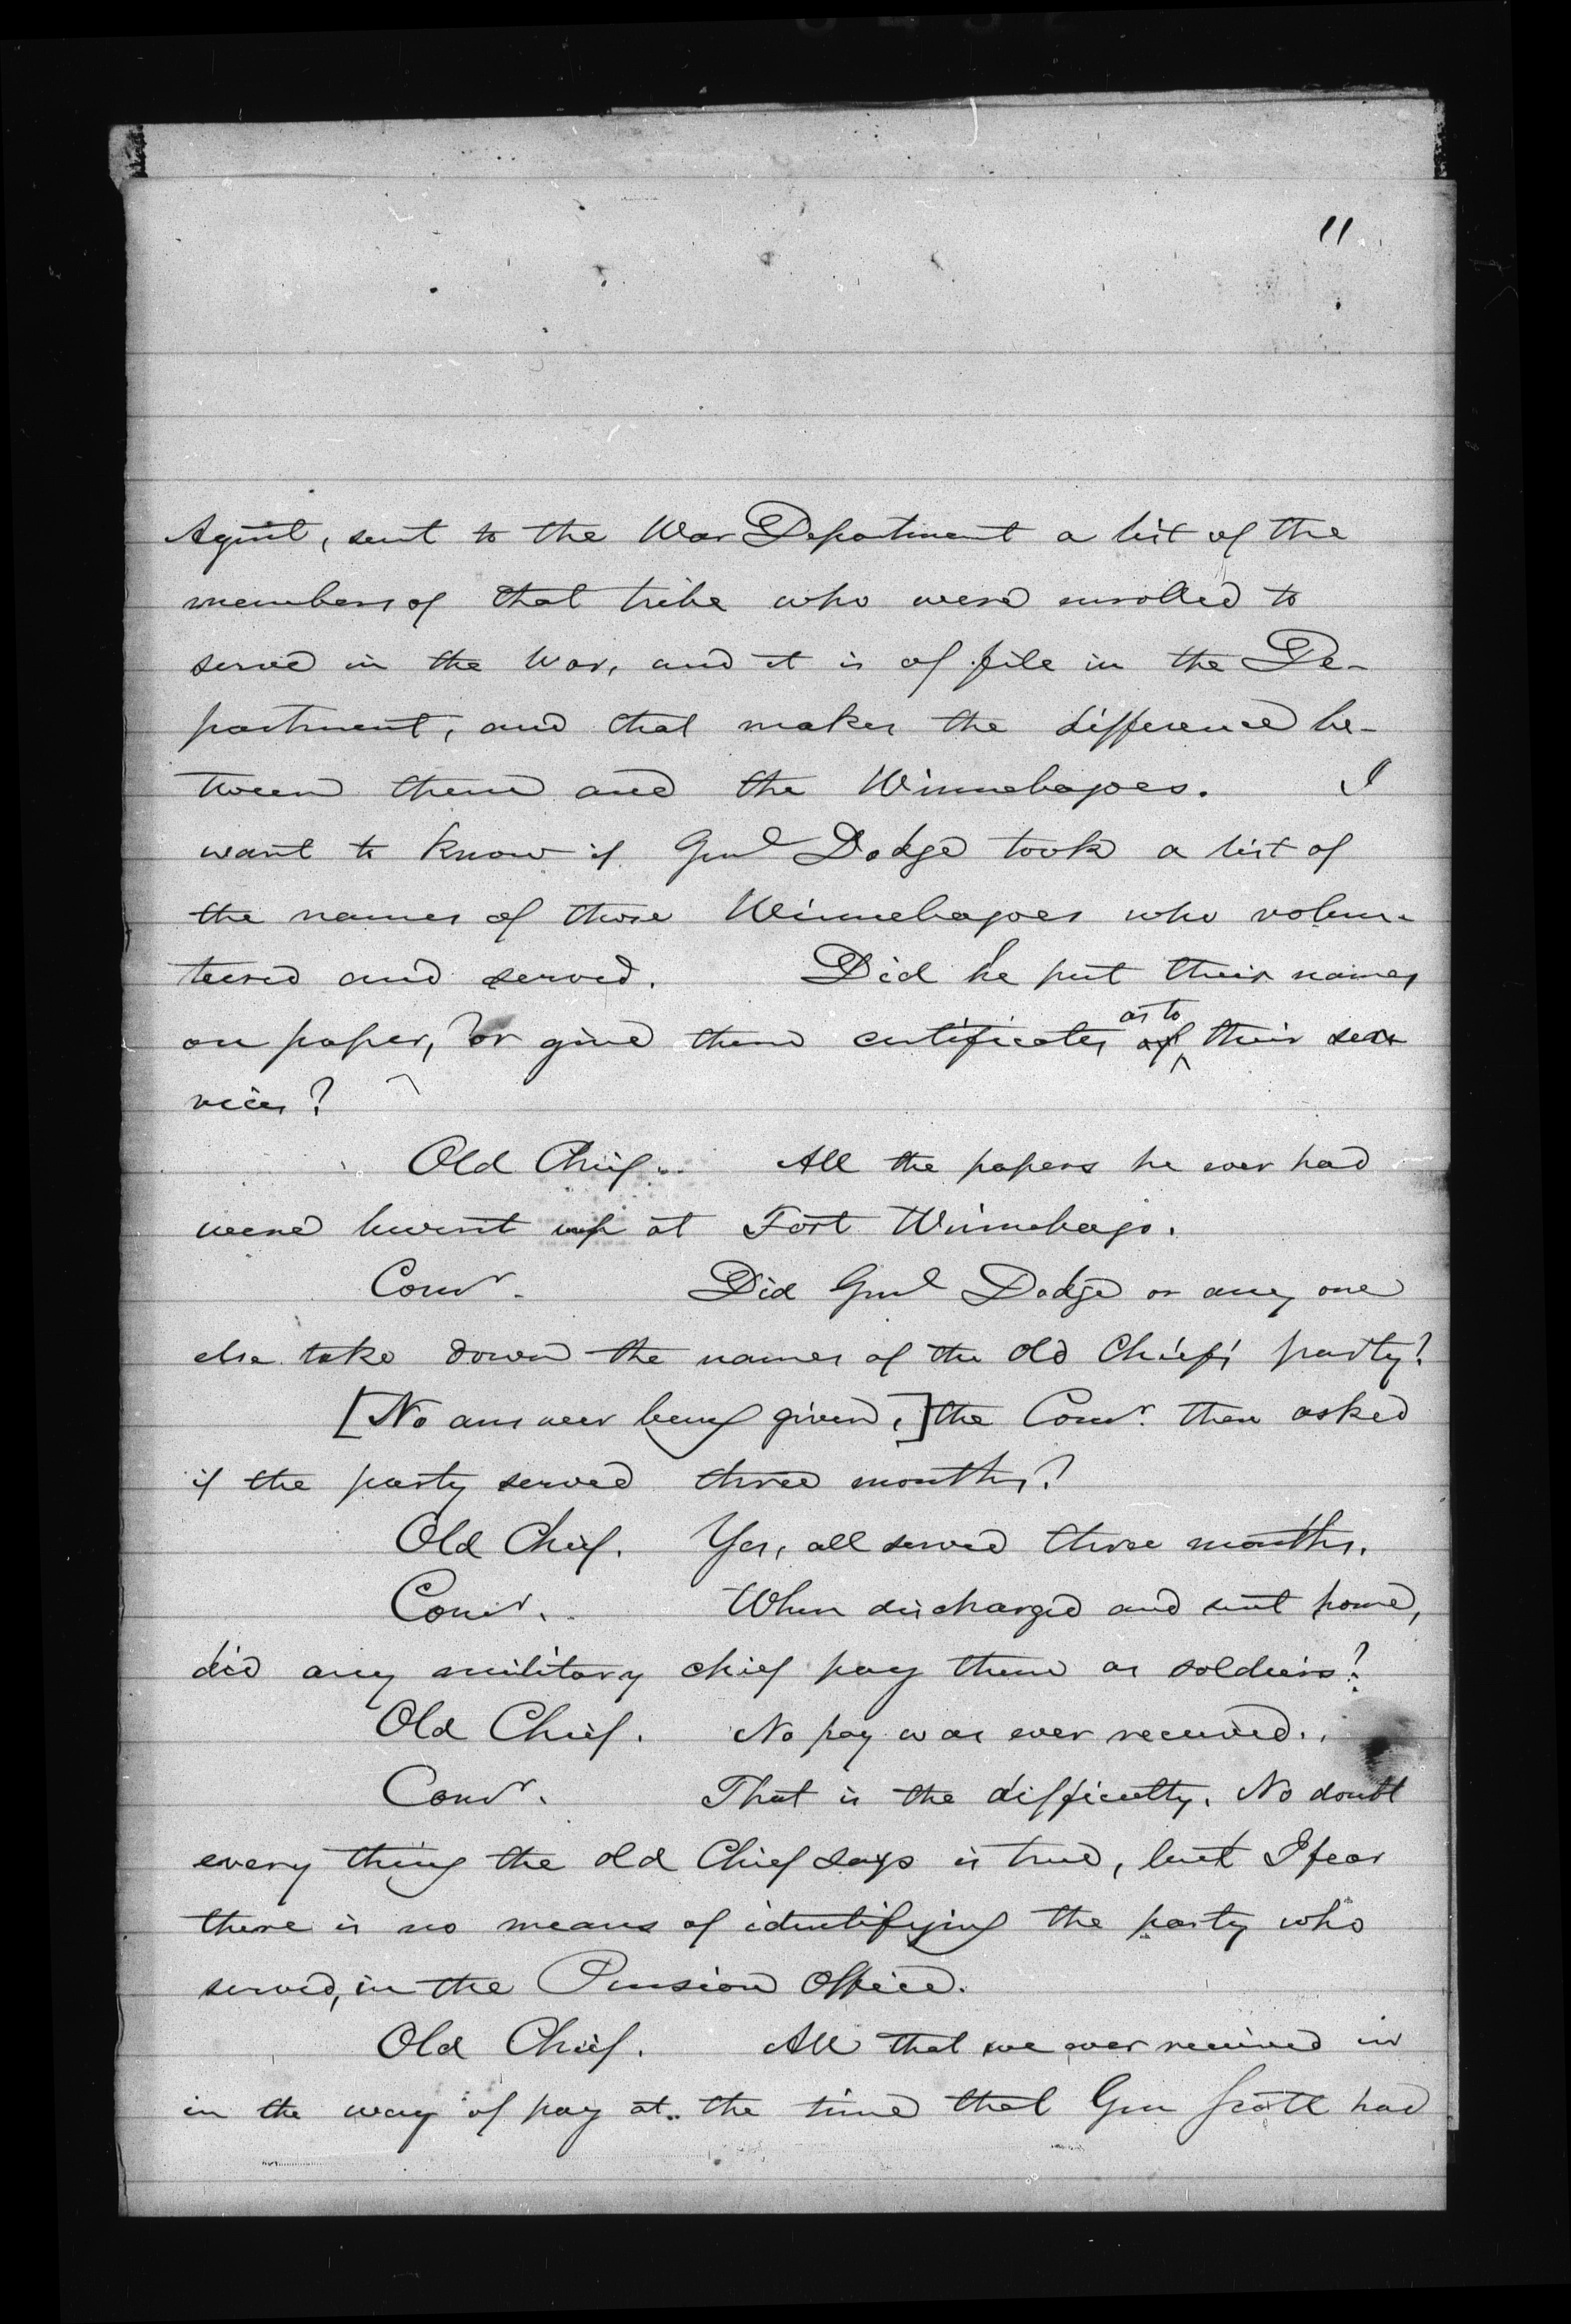 11
Agent, sent to the War Department a list of the
members of that tribe who were enrolled to
serve in the War, and it is of file in the De-
partment, and that makes the difference be-
tween them and the Winnebagoes. I
want to know if Genl Dodge took a list of
the names of those Winnebagoes who volun-
teered and served. Did he put their names
on paper, or give them certificates of as to their ser-
vices?
Old Chief. All the papers he ever had
were burnt up at Fort Winnebago.
Comr. Did Genl Dodge or any one
else take down the names of the old Chief's party?
[No answer being given,] the Comr. then asked
if the party served three months?
Old Chief. Yes, all served three months.
Comr. When discharged and sent home,
did any military chief pay them as soldiers?
Old Chief. No pay was ever received.
Comr. That is the difficulty. No doubt
every thing the old Chief says is true, but I fear
there is no means of identifying the party who
served, in the Pension Office.
Old Chief. All that we ever received in
in the way of pay at the time that Gen Scott had